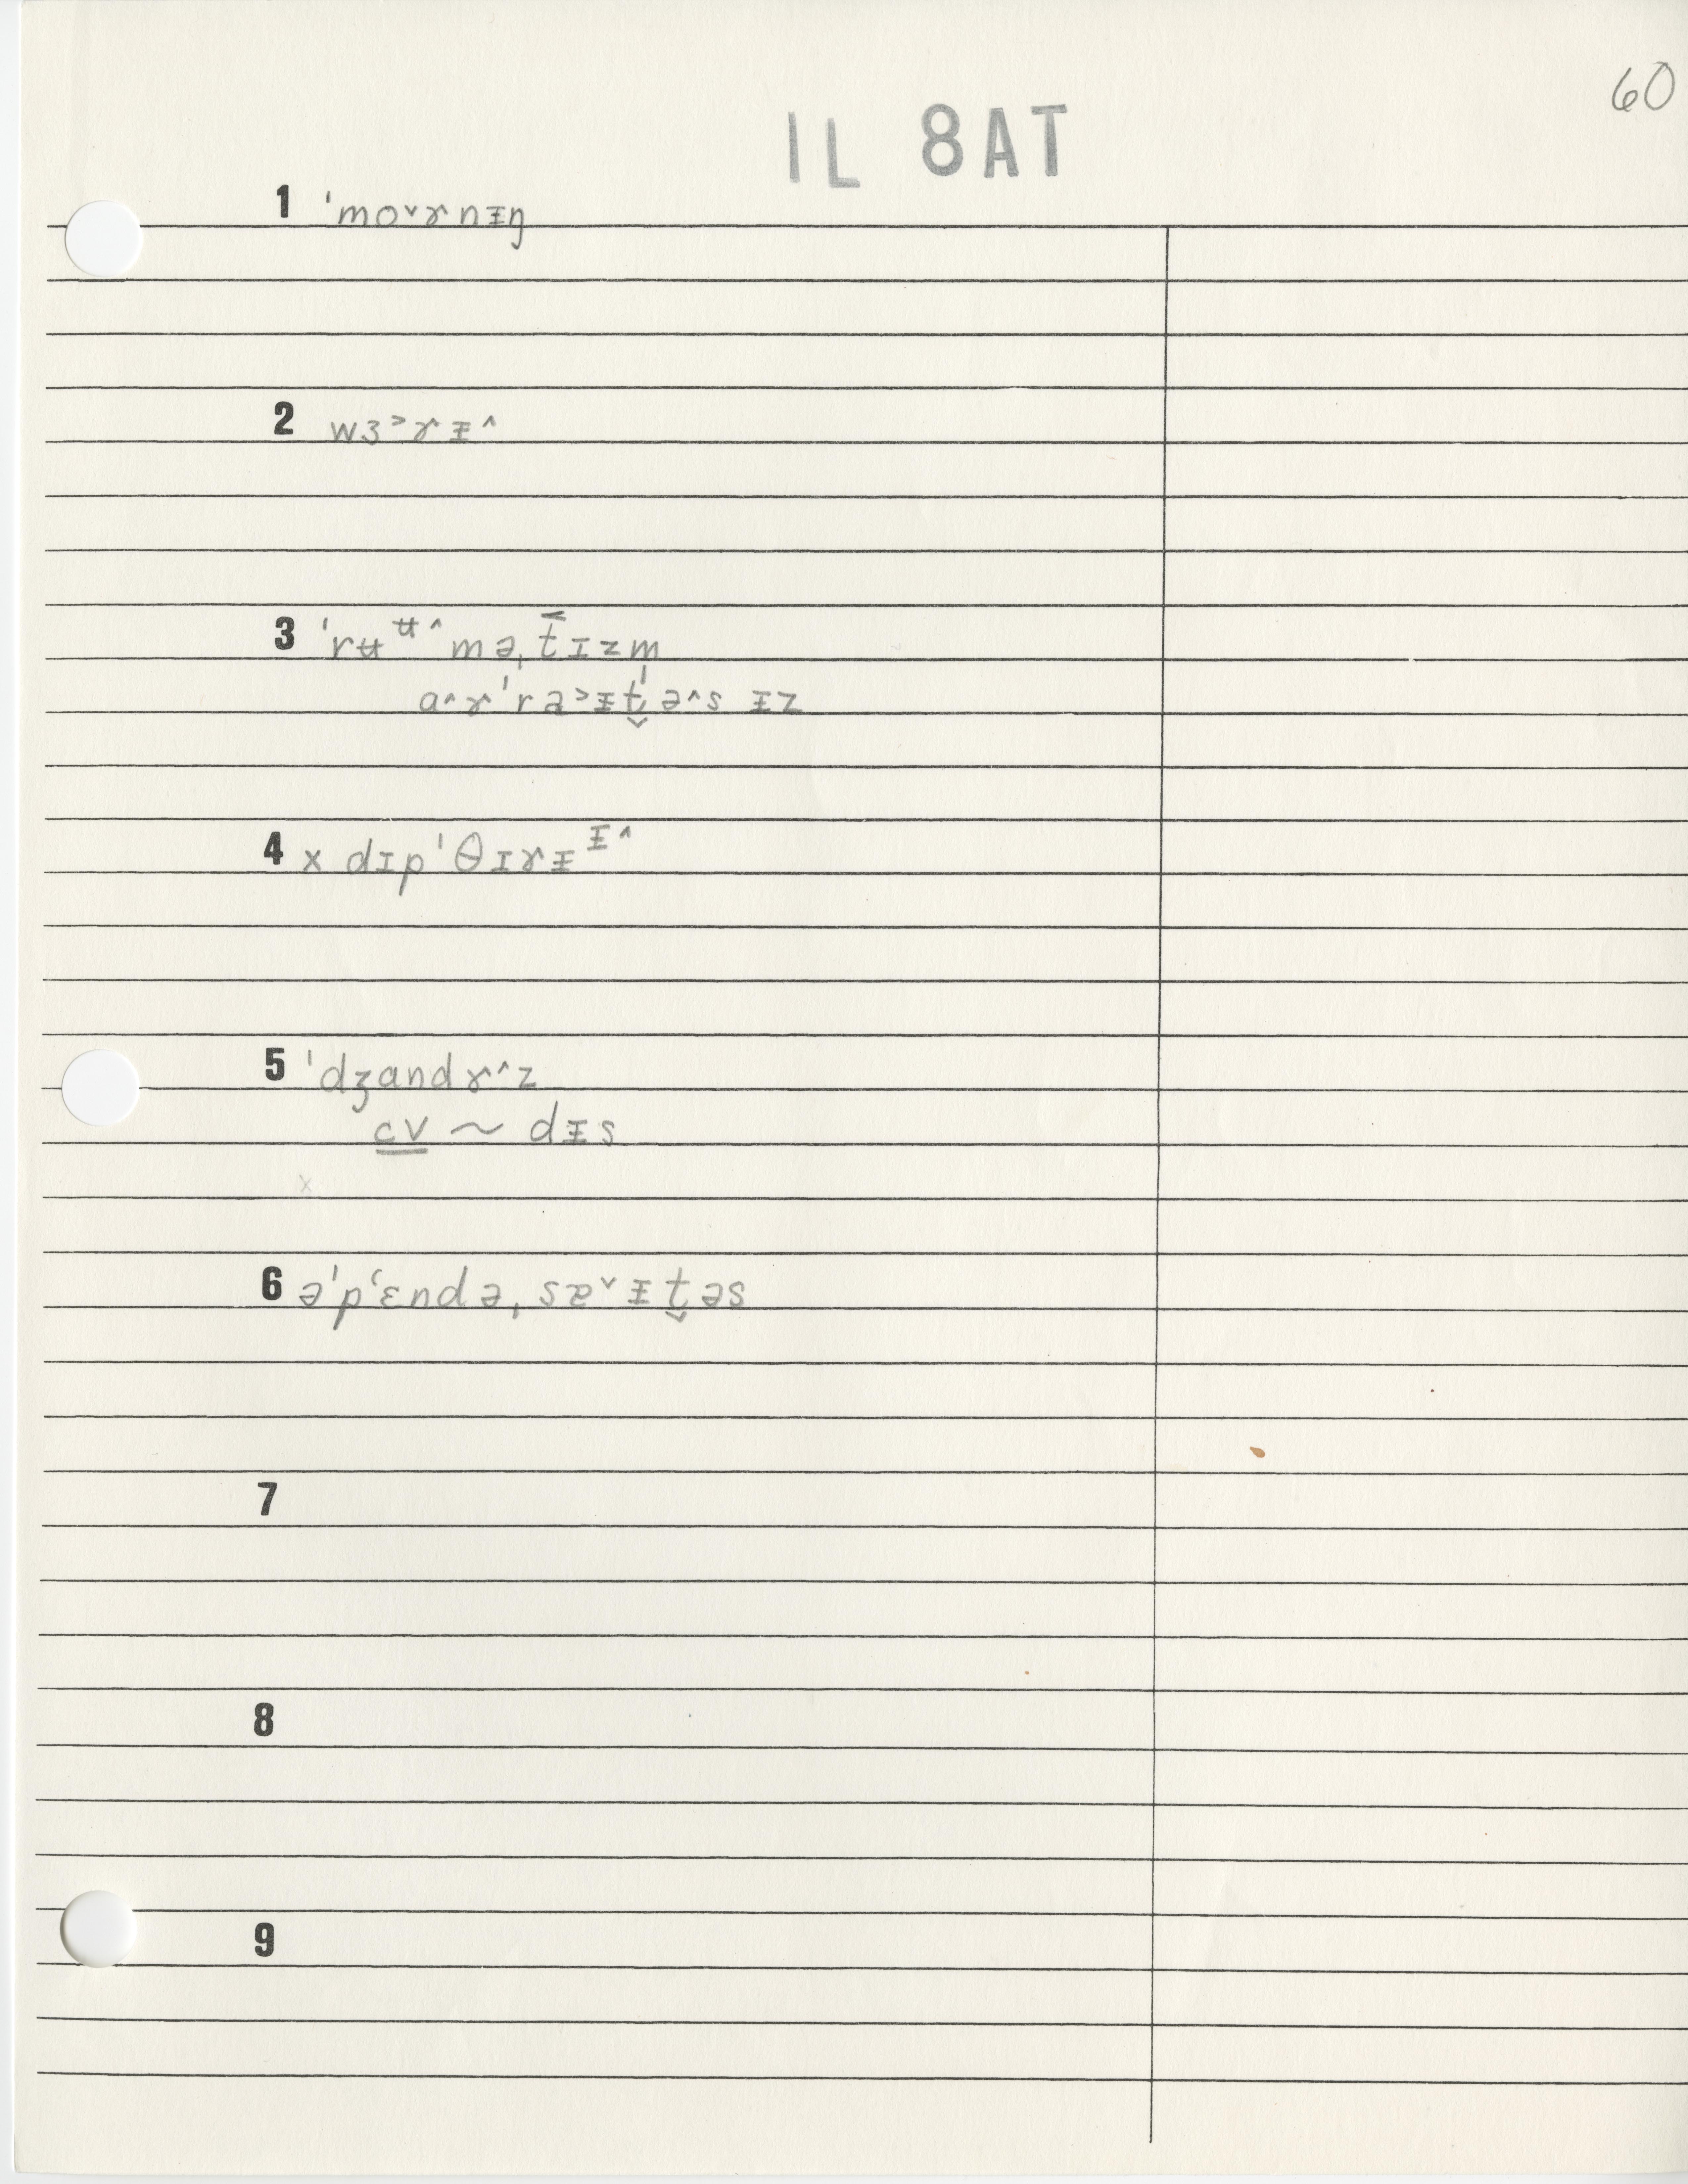 60
IL 8AT
1 ˈmo˅ɤnᵻŋ
2 wɜ˃ɤᵻ˄
3 ˈrʉᶶ˄məˌt̬ɪzm
a˄ɤˈrɐ˃ᵻt̬ˈə˄s ᵻz
4 x dɪpˈθɪɤᵻᵻ˄
5 ˈdʒandɤ˄z
cv ~ dᵻs
x
6 əˈpʻɛndəˌsɐ˅ᵻt̬əs
7
8
9